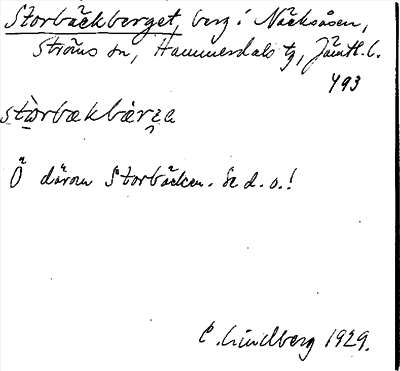 Storbäckberget, berg i Näcksåsen,
Ströms sn, Hammerdals tg, Jämtl. l.
493
stòrbækbærga
Ö därom Storbäcken. Se d. o.!
C. Lindberg 1929.